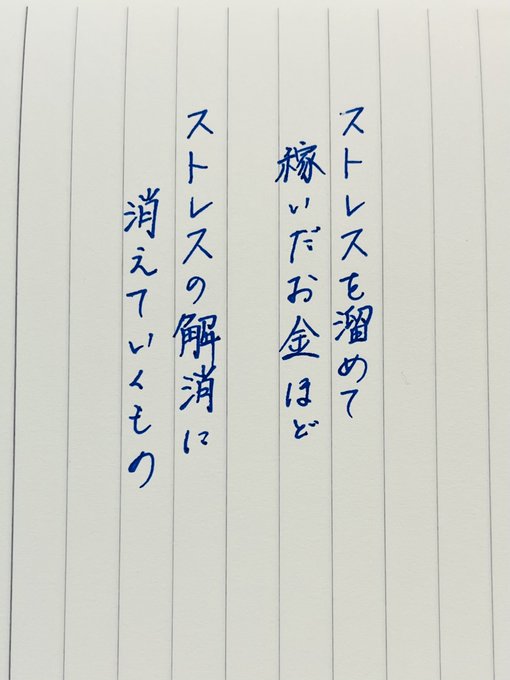 ストレスを溜めて
稼いだお金ほど
ストレスの解消に
消えていくもの